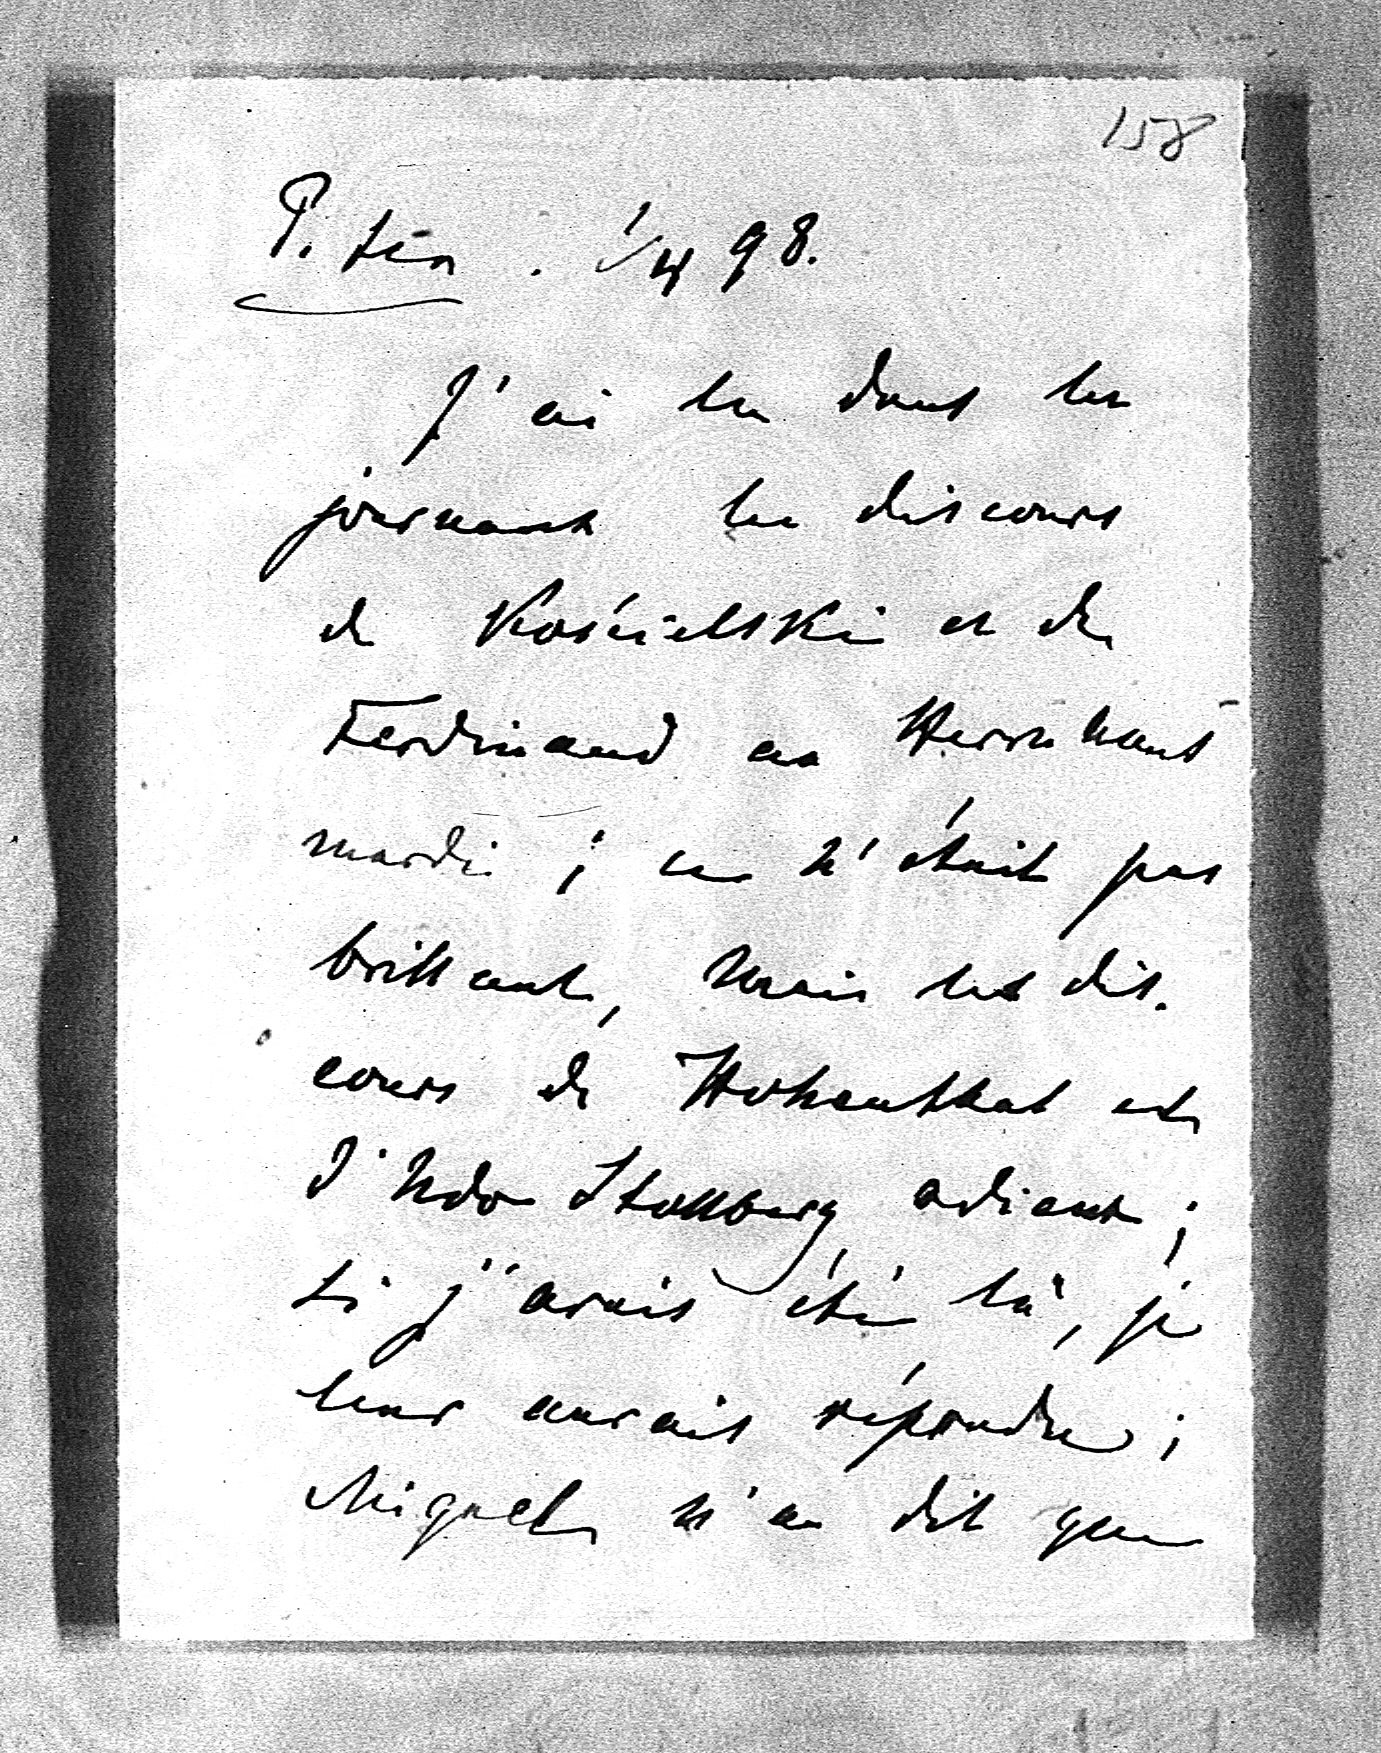 158
P. tėn. 1/4 98.
J'ai lu dans les
journaux les discours
de Kościelski et de
Ferdinand au Herrnhaus
mardi ; ce n'était pas
brillant, mais les dis-
cours de Hohenthal et
d'Udo Stollberg odieux ;
si j'avais été là, je
leur aurais répondu ;
Miquel n'a dit que